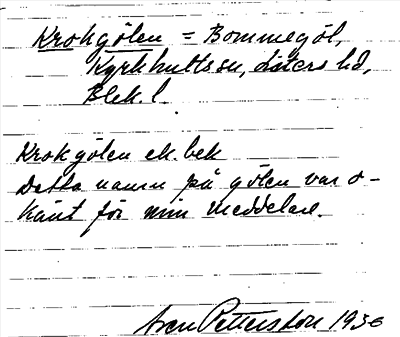 Krokgölen = Bommegöl,
Kyrkhults sn, Listers hd,
Blek. l.
Krokgölen ek. bek
Detta namn på gölen var o-
känt för min meddelare.
Sven Pettersson 1936